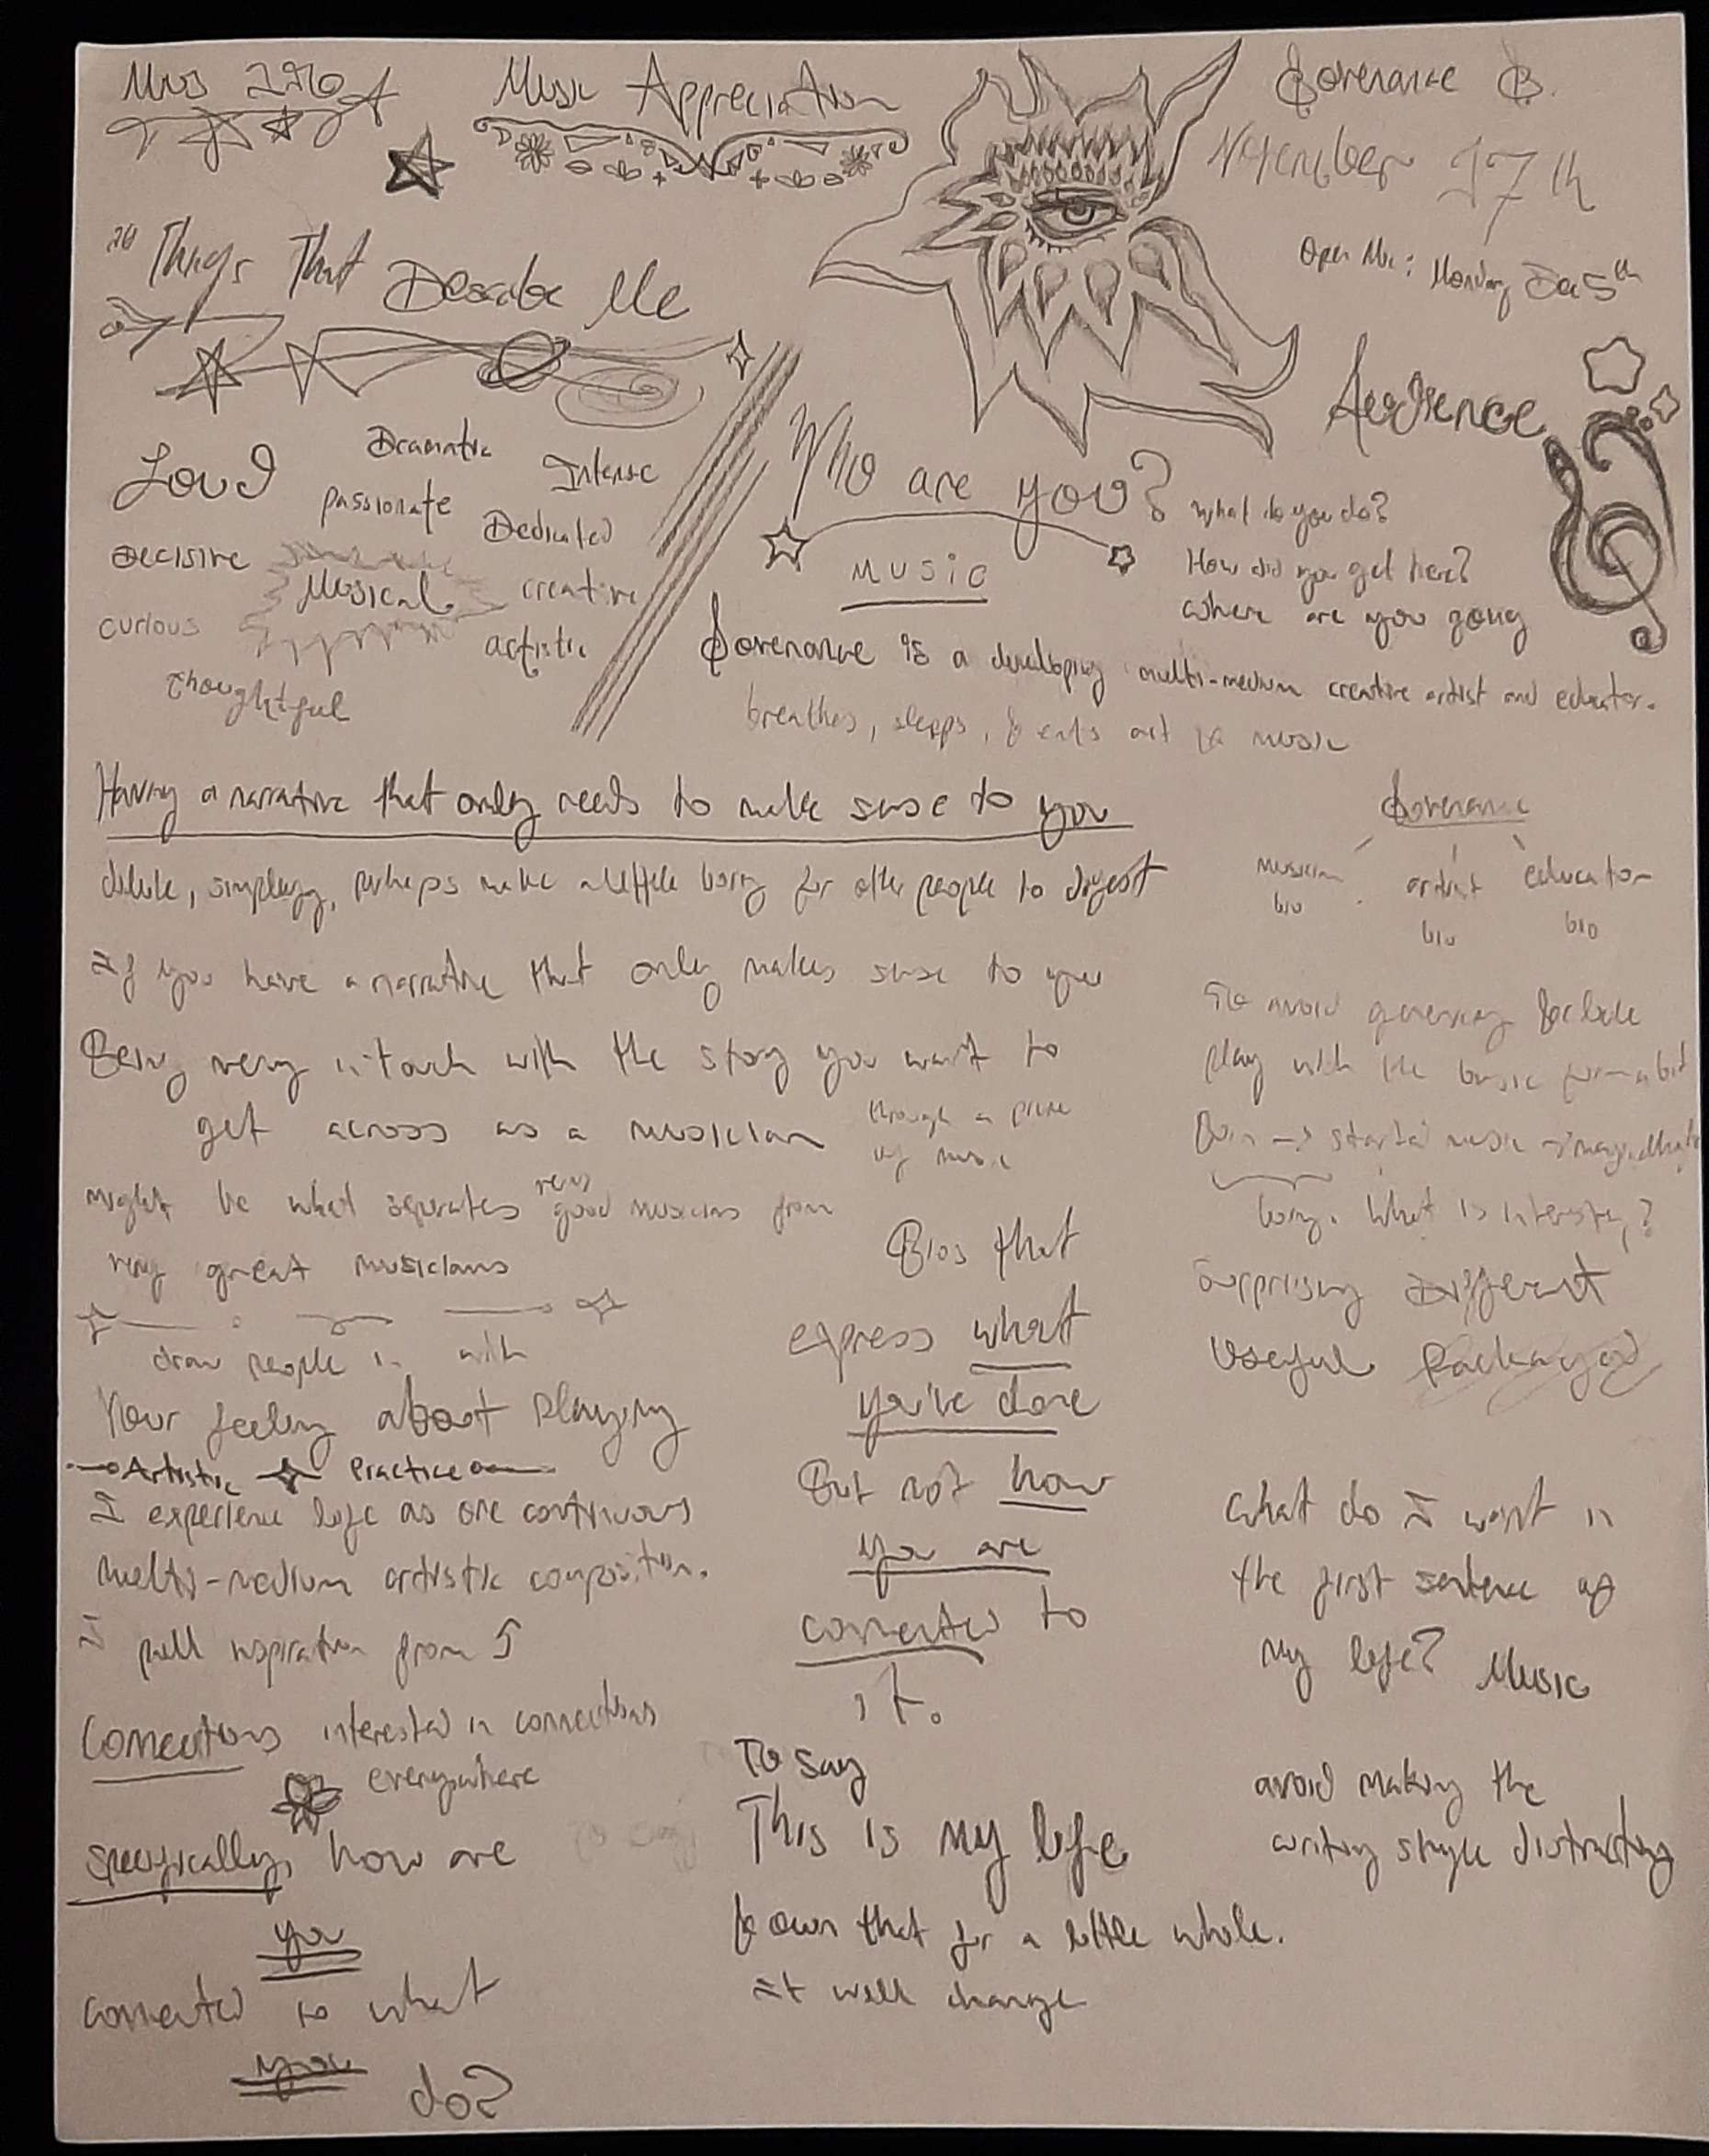 Music Appreciation
November 17th
Open Mic: Monday Dec 5th
"Things That Describe Me
Audience
Loud
Dramatic
Intense
passionate
Dedicated
Decisive
Musical
creative
curious
artistic
Thoughtful
Who are you?
What do you do?
How did you get here?
where are you going
MUSIC
is a developing multi-medium creative artist and educator.
breathes, sleeps, & eats art & music
Having a narrative that only needs to make sense to you
dilute, simplify, perhaps make a little boring for other people to digest
If you have a narrative that only makes sense to you
Being very in touch with the story you want to
get across as a musician
through a piece
of music
might be what separates very good musicians from
very great musicians
draw people in with
Your feeling about playing
Artistic Practice
I experience life as one continuous
multi-medium artistic composition.
I pull inspiration from
Connections interested in connections
everywhere
specifically, how are
you
connected to what
you do?
musician
bio
artist
bio
educator
bio
To avoid
play with the basic form a bit
Born → started music →
boring. What is interesting?
Surprising Different
Useful Packaged
Bios that
express what
you've done
But not how
you are
connected to
it.
To say
This is my life
& own that for a little while.
It will change
What do I want in
the first sentence of
my life? Music
avoid making the
writing style distracting